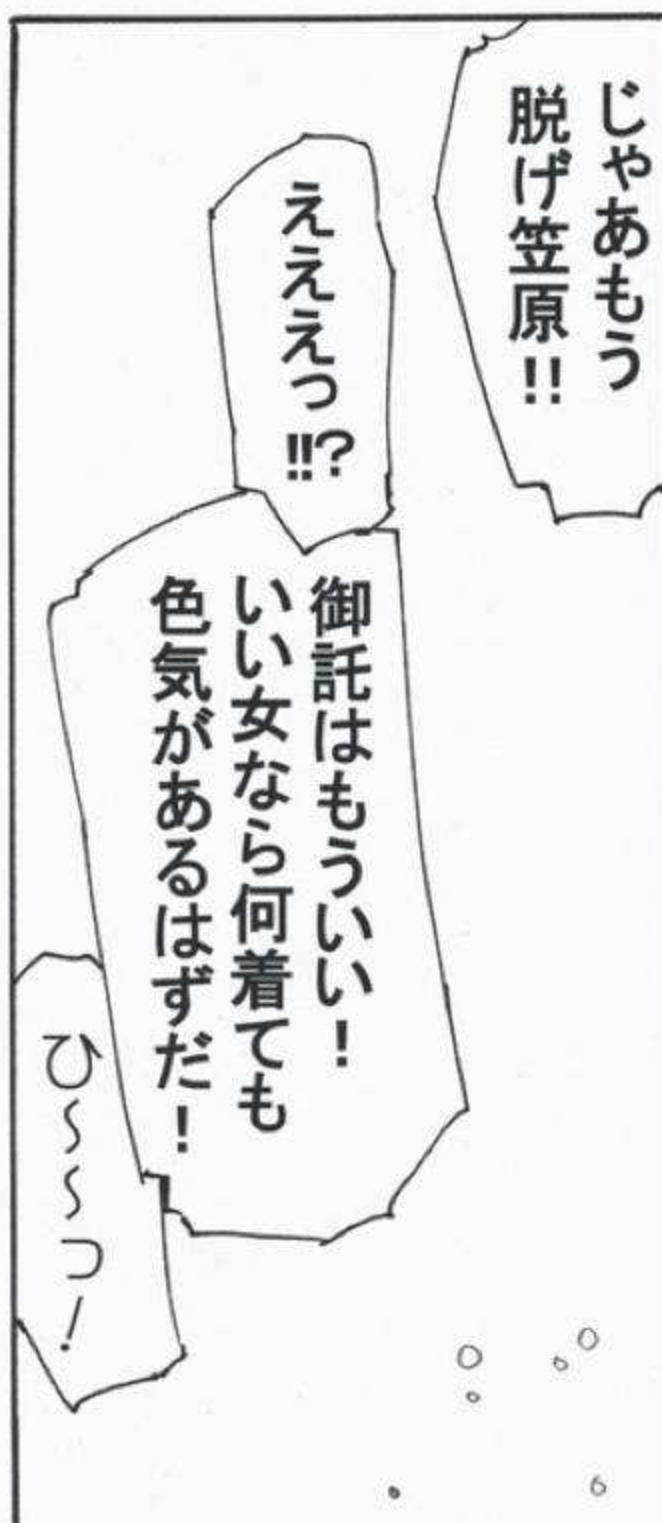 じゃあもう
脱げ笠原!!
えええっ!!?
御託はもういい!
いい女なら何着ても
色気があるはずだ!
ひ～～っ!